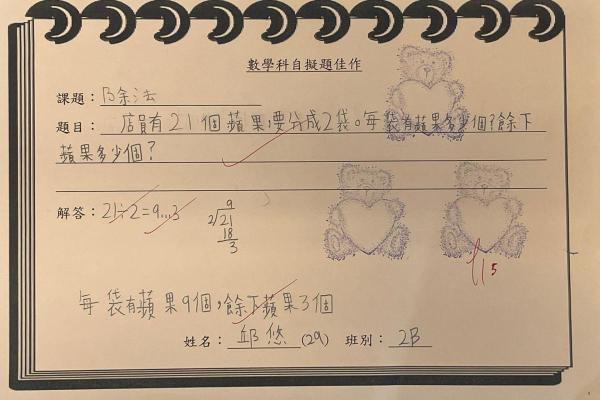 數學科自擬題佳作
課題：除法
題目：店員有21個蘋果,要分成2袋。每袋有蘋果多少個?餘下
蘋果多少個?
解答：21÷2=9...3
9
2 21
18
3
每袋有蘋果9個,餘下蘋果3個
姓名：邱悠 (29) 班別：2B